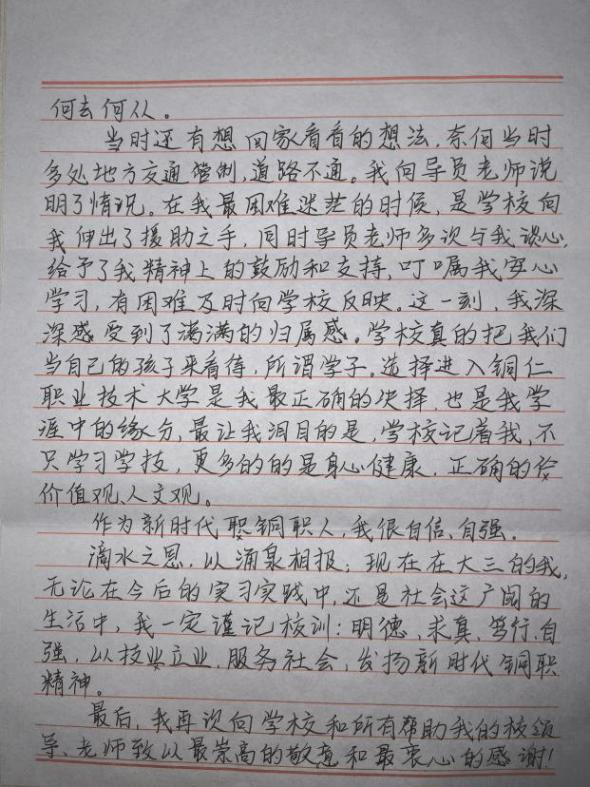 何去何从。
当时还有想回家看看的想法,奈何当时
多处地方交通管制,道路不通。我向导员老师说
明了情况。在我最困难迷茫的时候,是学校向
我伸出了援助之手,同时导员老师多次与我谈心,
给予了我精神上的鼓励和支持,叮嘱我安心
学习,有困难及时向学校反映。这一刻,我深
深感受到了满满的归属感。学校真的把我们
当自己的孩子来看待,所谓学子。选择进入铜仁
职业技术大学是我最正确的决择,也是我学
涯中的缘分,最让我泪目的是,学校记着我,不
只学习学技,更多的的是身心健康,正确的
价值观、人文观。
作为新时代 铜职人,我很自信、自强。
滴水之恩,以涌泉相报;现在在大三的我,
无论在今后的实习实践中,还是社会这广阔的
生活中,我一定谨记校训:明德,求真,笃行,自
强,以技业立业,服务社会,发扬新时代铜职
精神。
最后,我再次向学校和所有帮助我的校级
导、老师致以最崇高的敬意和最衷心的感谢!